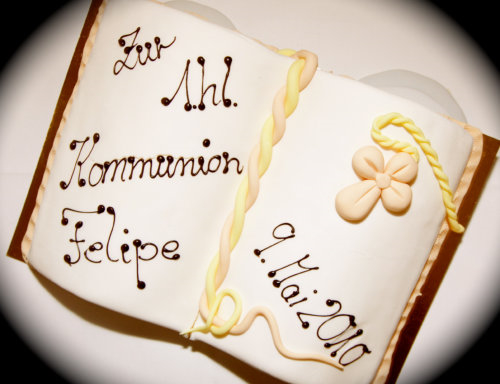 Zur
1hl.
Kommunion
Felipe
9 Mai 2010